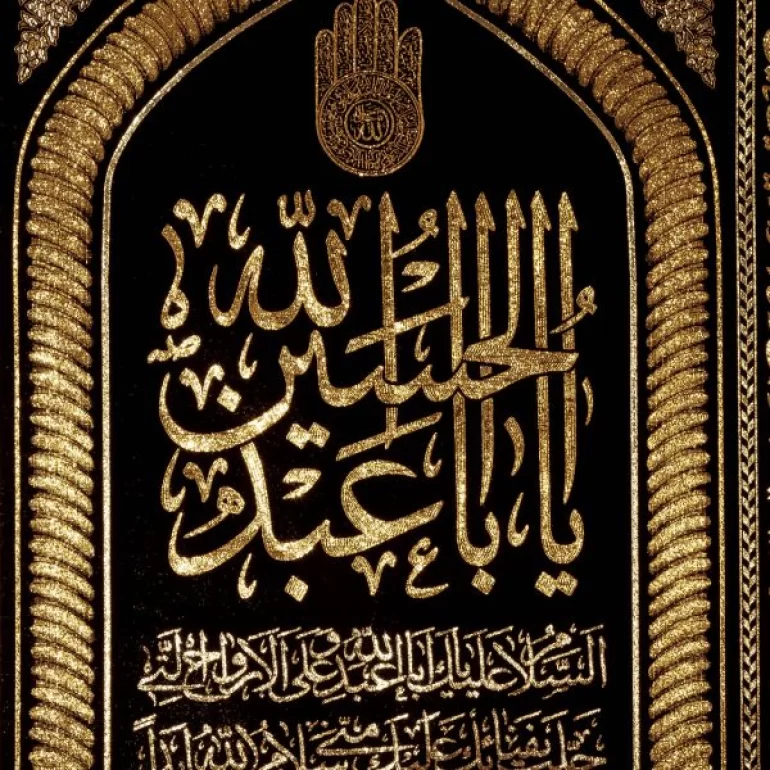 الله
يا ابا عبد الله الحسين
السلام عليك يا ابا عبد الله و على الارواح التي
حلت بفنائك عليك مني سلام الله ابداً